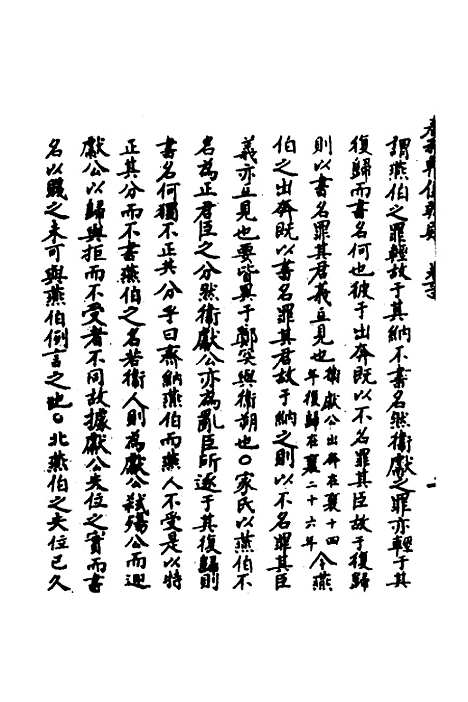 謂燕伯之罪輕故于其納不書名然衛獻之罪亦輕于其
復歸而書名何也彼于出奔既以不名罪其臣故于復歸
則以書名罪其君義互見也衛獻公出奔在襄十四年復歸在襄二十六年今燕
伯之出奔既以書名罪其君故于納之則以不名罪其臣
義亦互見也要皆異于鄭突與衛朔也○家氏以燕伯不
名為正君臣之分然衛獻公亦為亂臣所逐于其復歸則
書名何獨不正其分乎曰齊納燕伯而燕人不受是以特
正其分而不書燕伯之名若衛人則為獻公弒殤公而迎
獻公以歸與拒而不受者不同故據獻公失位之實而書
名以賤之未可與燕伯例言之也○北燕伯之失位已久